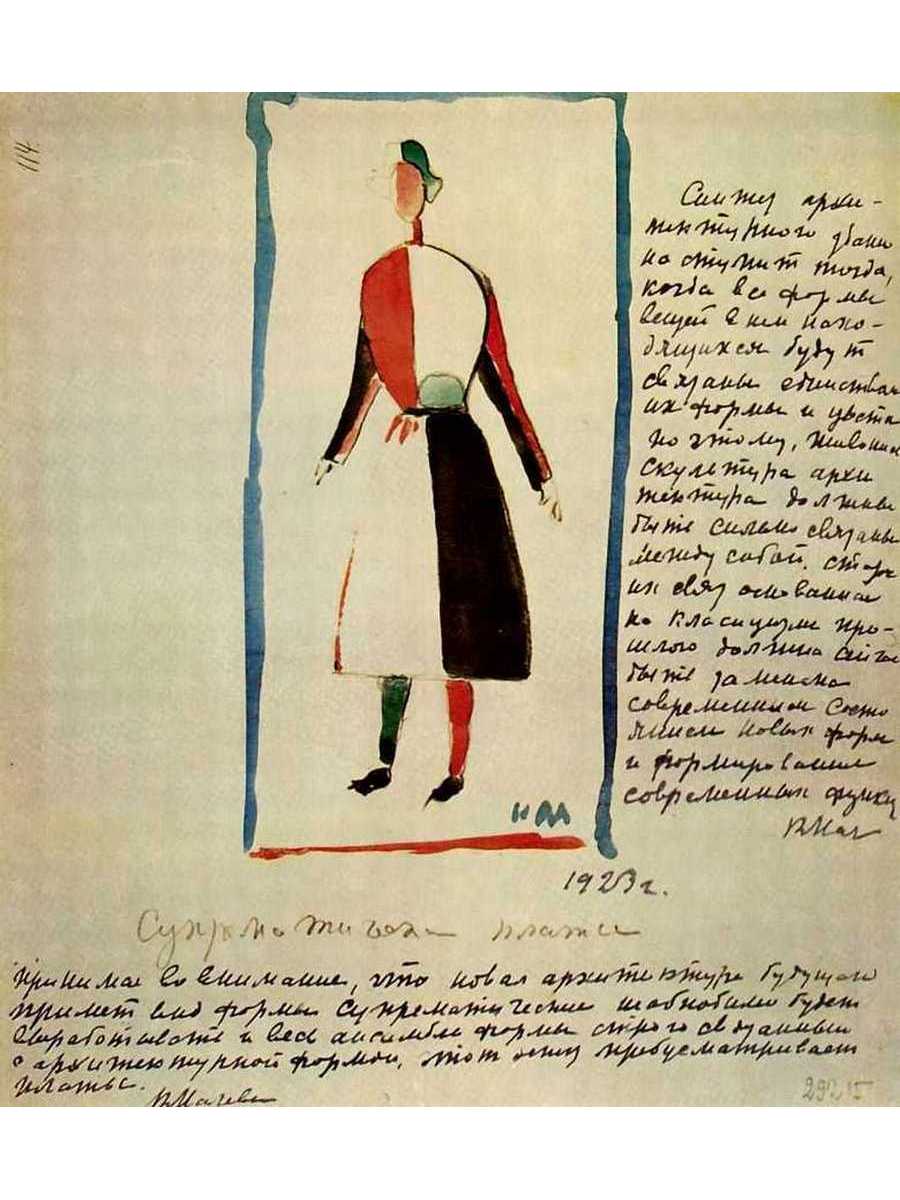 114
Синтез архи-
тектурного здани
наступит тогда,
когда все формы
вещей в нем нахо-
дящихся будут
связаны единством
их формы и цвета
по этому, живопись
скульптура архи
тектура должны
быть сильно связаны
между собой. стара
их связ основанная
на класицизме про-
шлого должна
быть заменена
современным состо
янием новых форм
и формирования
современных функц
КМал
КМ
1923 г.
Супрематическ платье
Принимая во внимание, что новая архитектура будущаго
примет вид формы супрематические необходимо будет
вырабатывать и весь ансамбль формы строго связанный
с архитектурной формой, этот эскиз предусматривает
платье.
КМалеви